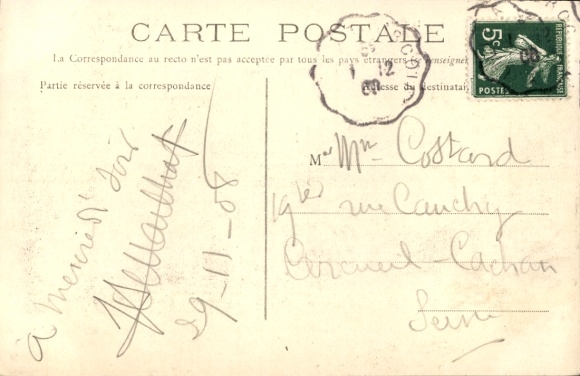 CARTE POSTALE
La Correspondance au recto n'est pas acceptée par tous les pays étrangers
Partie réservée à la correspondance
Adresse du destinataire
5c
REPUBLIQUE FRANÇAISE
POSTES
1 12
08
à mercredi soir
29-11-08
M Costard
19 rue Cauchy
Arcueil-Cachan
Seine